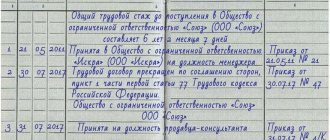 Общий трудовой стаж до поступления в Общество с
ограниченной ответственностью «Союз» (ООО «Союз»)
составляет 6 лет 2 месяца 7 дней
Общество с ограниченной ответственностью
«Искра» (ООО «Искра»)
1 21 05 2011 Принята в Общество с ограниченной ответственностью Приказ от
«Искра» (ООО «Искра») на должность менеджера 21.05.11 № 21
2 30 07 2017 Трудовой договор прекращен по соглашению сторон, Приказ от
пункт 1 части первой статьи 77 Трудового кодекса 30.07.17 № 47
Российской Федерации
Общество с ограниченной ответственностью «Союз»
(ООО «Союз»)
3 31 07 2017 Принята на должность продавца-консультанта Приказ от